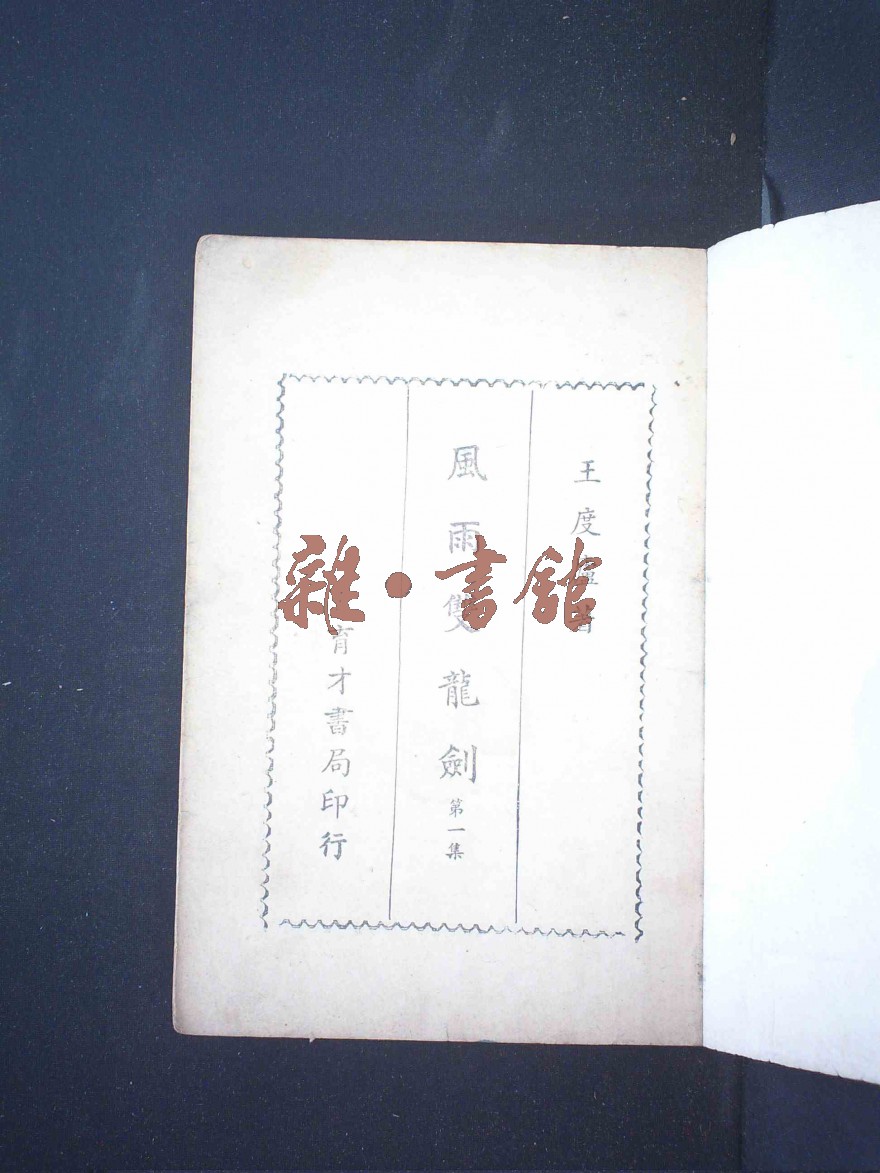 王度盧著
風雨雙龍劍 第一集
育才書局印行
雜·書館